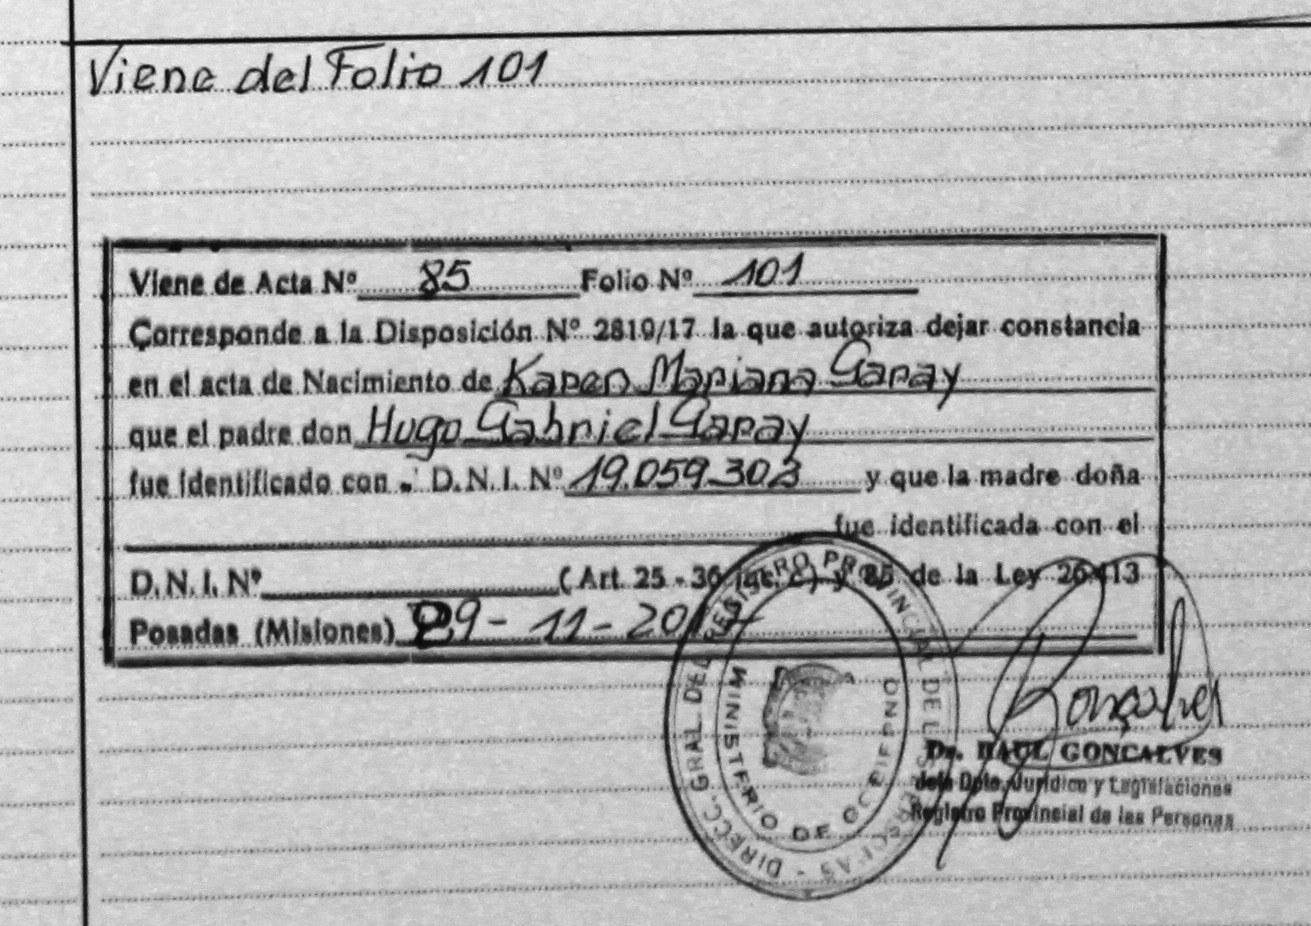 Viene del Folio 101
Viene de Acta Nº 85 Folio Nº 101
Corresponde a la Disposición Nº 2819/17 la que autoriza dejar constancia
en el acta de Nacimiento de Karen Mariana Garay
que el padre don Hugo Gabriel Garay
fue identificado con D.N.I. Nº 19.059.303 y que la madre doña
fue identificada con el
D.N.I. Nº (Art. 25 - 36 Inc. c) y 85 de la Ley 26413
Posadas (Misiones) 29-11-2017
DIRECC. GRAL. DEL REGISTRO PROVINCIAL DE LAS PERSONAS
MINISTERIO DE GOBIERNO
Gonçalves
Dr. RAUL GONCALVES
Jefe Dpto. Jurídico y Legislaciones
Registro Provincial de las Personas